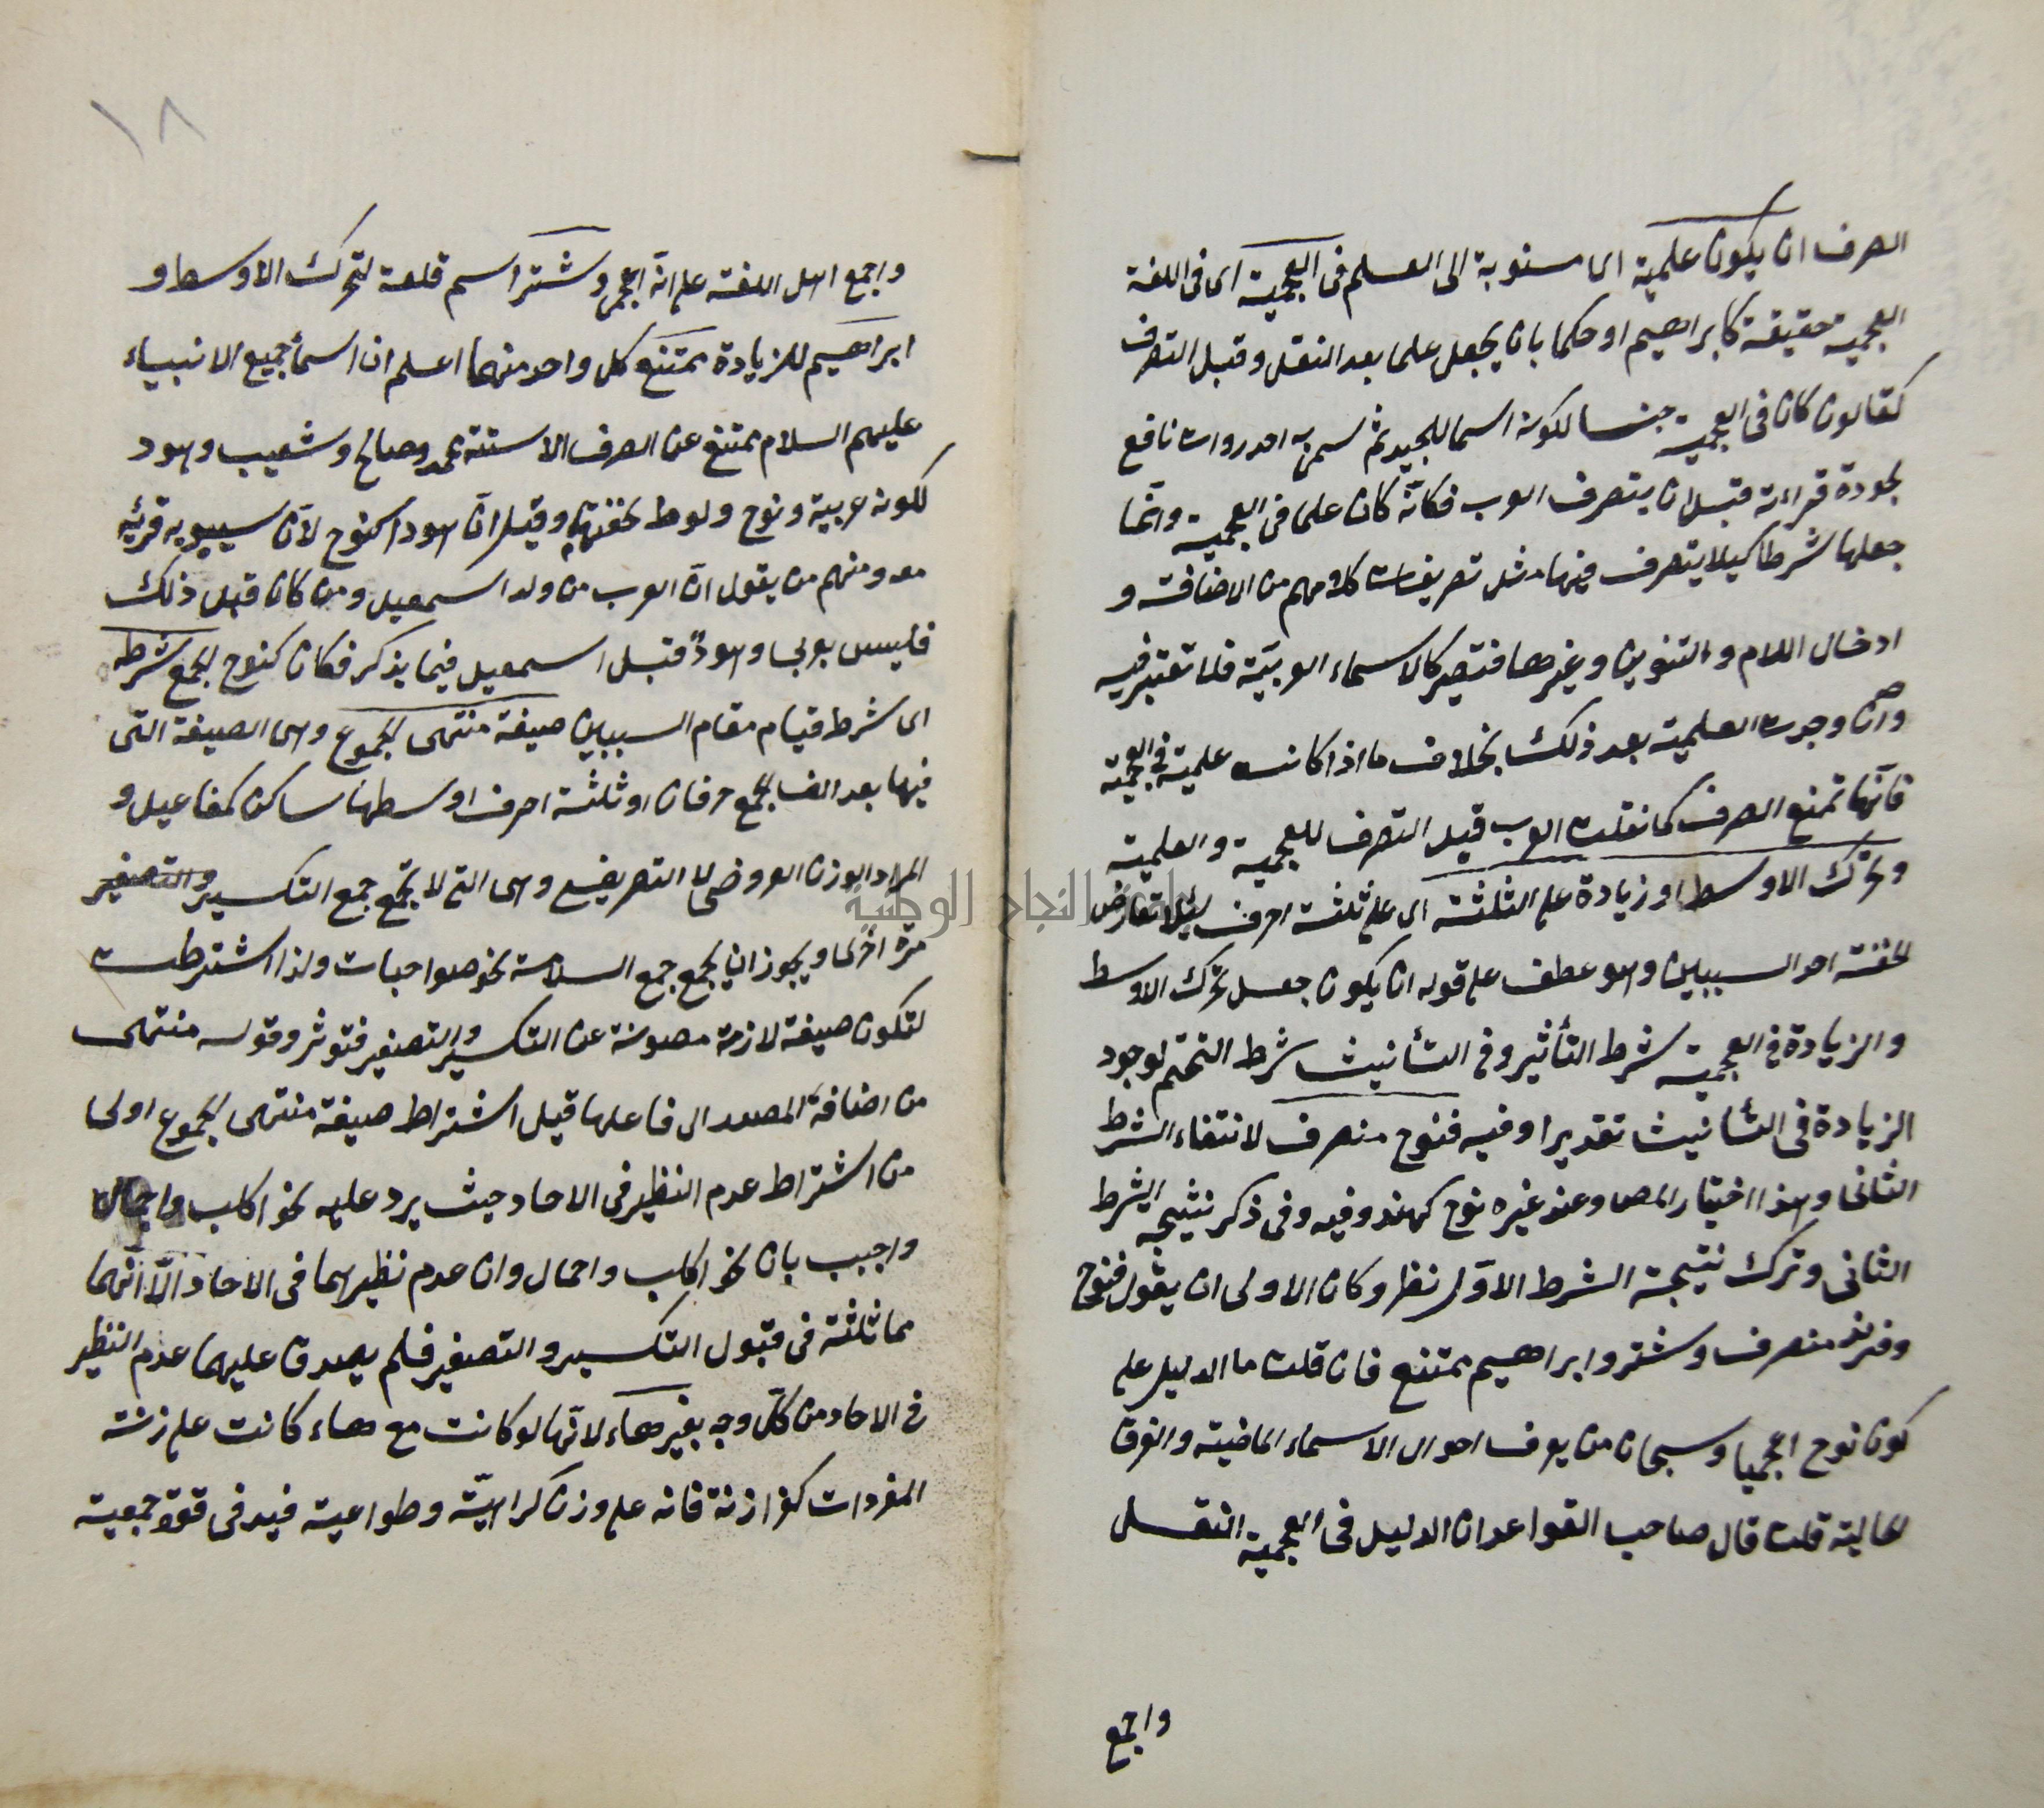 الصرف ان يكون علمية اى منسوبة الى العلم فى العجمية اى فى اللغة
العجمية حقيقة كابراهيم او حكما بان يجعل علما بعد النقل وقبل التصرف
كقالون كان فى العجمية جنسا لكونه اسما للجيد ثم سمى به احد رواة نافع
لجودة قراءته قبل ان يتصرف العرب فكانّه كان علما فى العجمية وانّما
جعلها شرطا كيلا يتصرف فيها مثل تصريفات كلامهم من الاضافة و
ادخال اللام والتنوين وغيرها فتصير كالاسماء العربيّة فلا تعتبر فيه
وان وجدت العلمية بعد ذلك بخلاف ما اذا كانت علمية فى العجمية
فانّها تمنع الصرف كما نقلت العرب قبل التصرف للعجمية والعلمية
وتحرك الاوسط او زيادة على الثلثة اى على ثلثة احرف لئلا تعارض
الخفة احد السببين وهو عطف على قوله ان يكون جعل تحرك الاوسط
والزيادة فى العجمية شرط التأثير وفى التأنيث شرط التحتم لوجود
الزيادة فى التأنيث تقديرا وفيه فنوح منصرف لانتفاء الشرط
الثانى وهذا اختيار المص وعند غيره نوح كهند وفيه وفى ذكر نتيجة الشرط
الثانى وترك نتيجة الشرط الاوّل نظر وكان الاولى ان يقول فنوح
وفرند منصرف وشتر وابراهيم ممتنع فان قلت ما الدليل على
كون نوح اعجميا وسبحان من يعرف احوال الاسماء الماضية والفرق
الحالية قلت قال صاحب القواعد ان الدليل فى العجمية النقل
واجمع
١٨
واجمع اهل اللغة على انّه اعجمى وشتر اسم قلعة لتحرك الاوسط و
ابراهيم للزيادة ممتنع كل واحد منهما اعلم ان اسمأ جميع الانبياء
عليهم السلام ممتنع عن الصرف الا ستة محمد وصالح وشعيب وهود
لكونه عربية ونوح ولوط لخفتها وقيل انّ هودا كنوح لأن سيبويه قرنه
معه ومنهم من يقول انّ العرب من ولد اسمعيل ومن كان قبل ذلك
فليس بعربى وهودٌ قبل اسمعيل فيما يذكر فكان كنوح الجمع شرطه
اى شرط قيام مقام السببين صيغة منتهى الجموع وهى الصيغة التى
فيها بعد الف الجمع حرفان او ثلثة احرف اوسطها ساكن كمفاعيل و
المراد الوزن العروضى لا التصريفى وهى التى لا يجمع جمع التكسير والتصغير
مرة اخرى ويجوز ان يجمع جمع السلامة نحو صواحبات ولذا اشترطت
لتكون صيغة لازمة مصونة عن التكسير والتصغير فتوثر وقوله منتهى
من اضافة المصدر الى فاعلها قيل اشتراط صيغة منتهى الجموع اولى
من اشتراط عدم النظير فى الاحاد حيث يرد عليه نحو اكلب واجمال
واجيب بان نحو اكلب واجمال وان عدم نظيرهما فى الاحاد الّا انّهما
مماثلة فى قبول التكسير والتصغير فلم يصدق عليهما عدم النظير
فى الاحاد من كلّ وجه بغير هاء لانّها لو كانت مع هاء كانت على زنة
المفردات كفرازنة فانه على وزن كراهيّة وطواعية فيد فى قوة جمعية